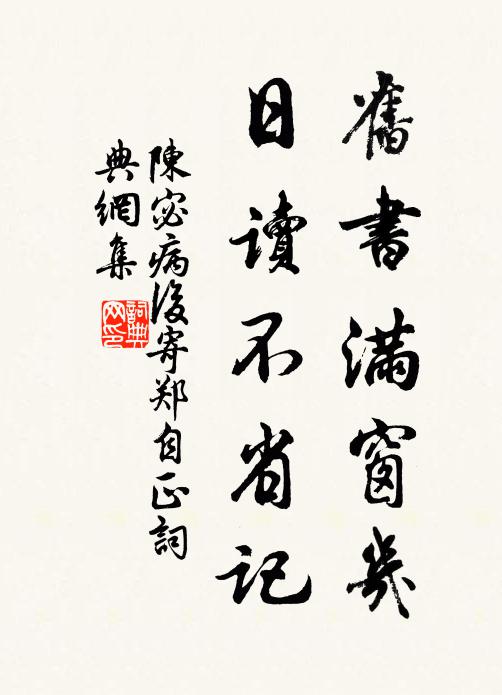 舊書滿窗幾
日讀不省記
陳宓病後寄郑自正詞
典網集
詞典
网印